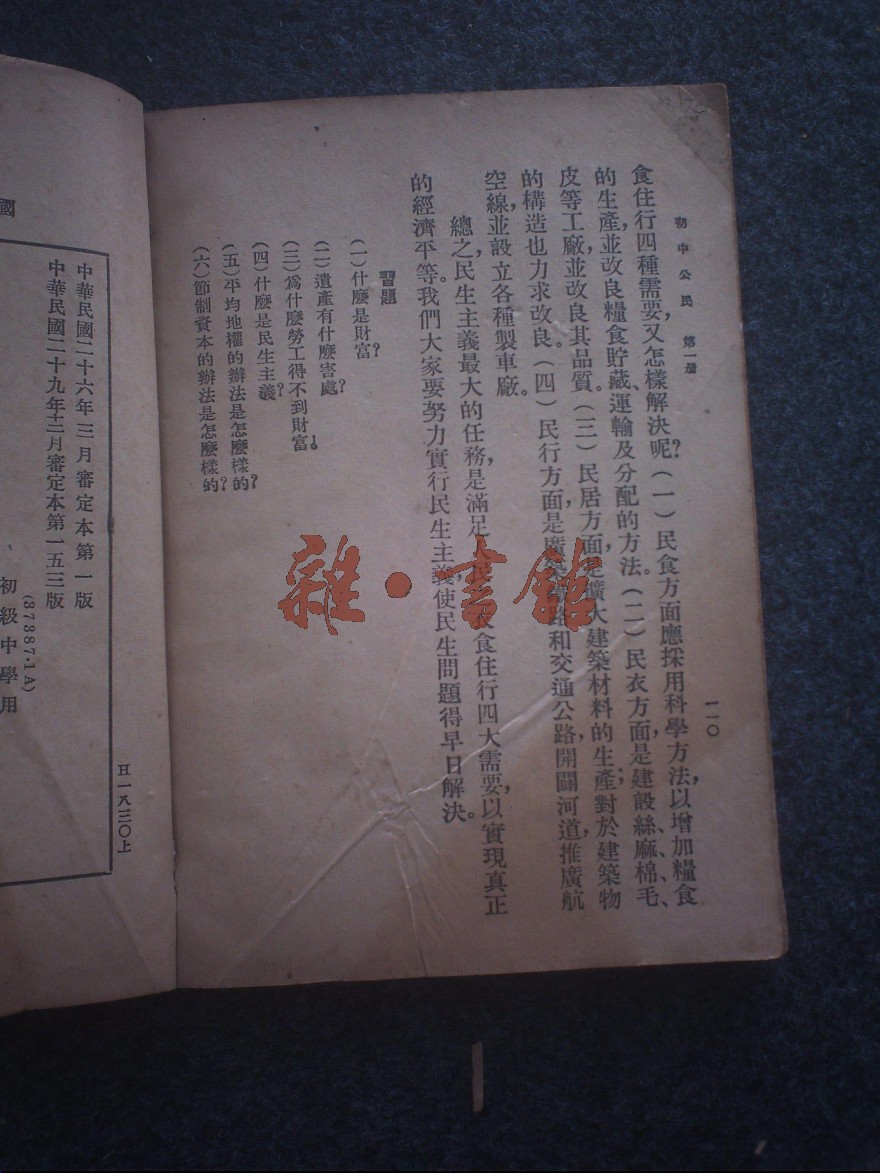 初中公民　第一册
一一〇
食住行四種需要，又怎樣解決呢？（一）民食方面應採用科學方法，以增加糧食
的生產，並改良糧食貯藏、運輸及分配的方法。（二）民衣方面，是建設絲、麻、棉、毛、
皮等工廠，並改良其品質。（三）民居方面，是擴大建築材料的生產；對於建築物
的構造也力求改良。（四）民行方面，是廣築路和交通公路，開闢河道，推廣航
空線，並設立各種製車廠。
總之，民生主義最大的任務，是滿足人民衣食住行四大需要，以實現真正
的經濟平等。我們大家要努力實行民生主義，使民生問題得早日解決。
習題
（一）什麼是財富？
（二）遺產有什麼害處？
（三）爲什麼勞工得不到財富？
（四）什麼是民生主義？
（五）平均地權的辦法是怎麼樣的？
（六）節制資本的辦法是怎麼樣的？
中華民國二十六年三月審定本第一版
中華民國二十九年十二月審定本第一五三版
(37387·1A)
初級中學用
國
日一八三〇上
雜·書館